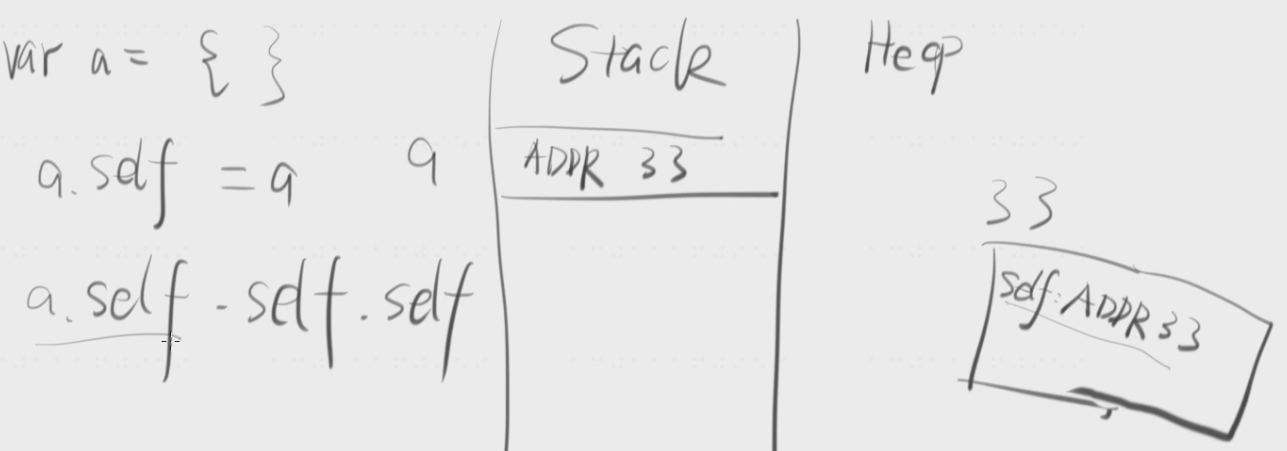 var a = { }
a.self = a
a.self.self.self
a
Stack
ADDR 33
Heap
33
self: ADDR 33